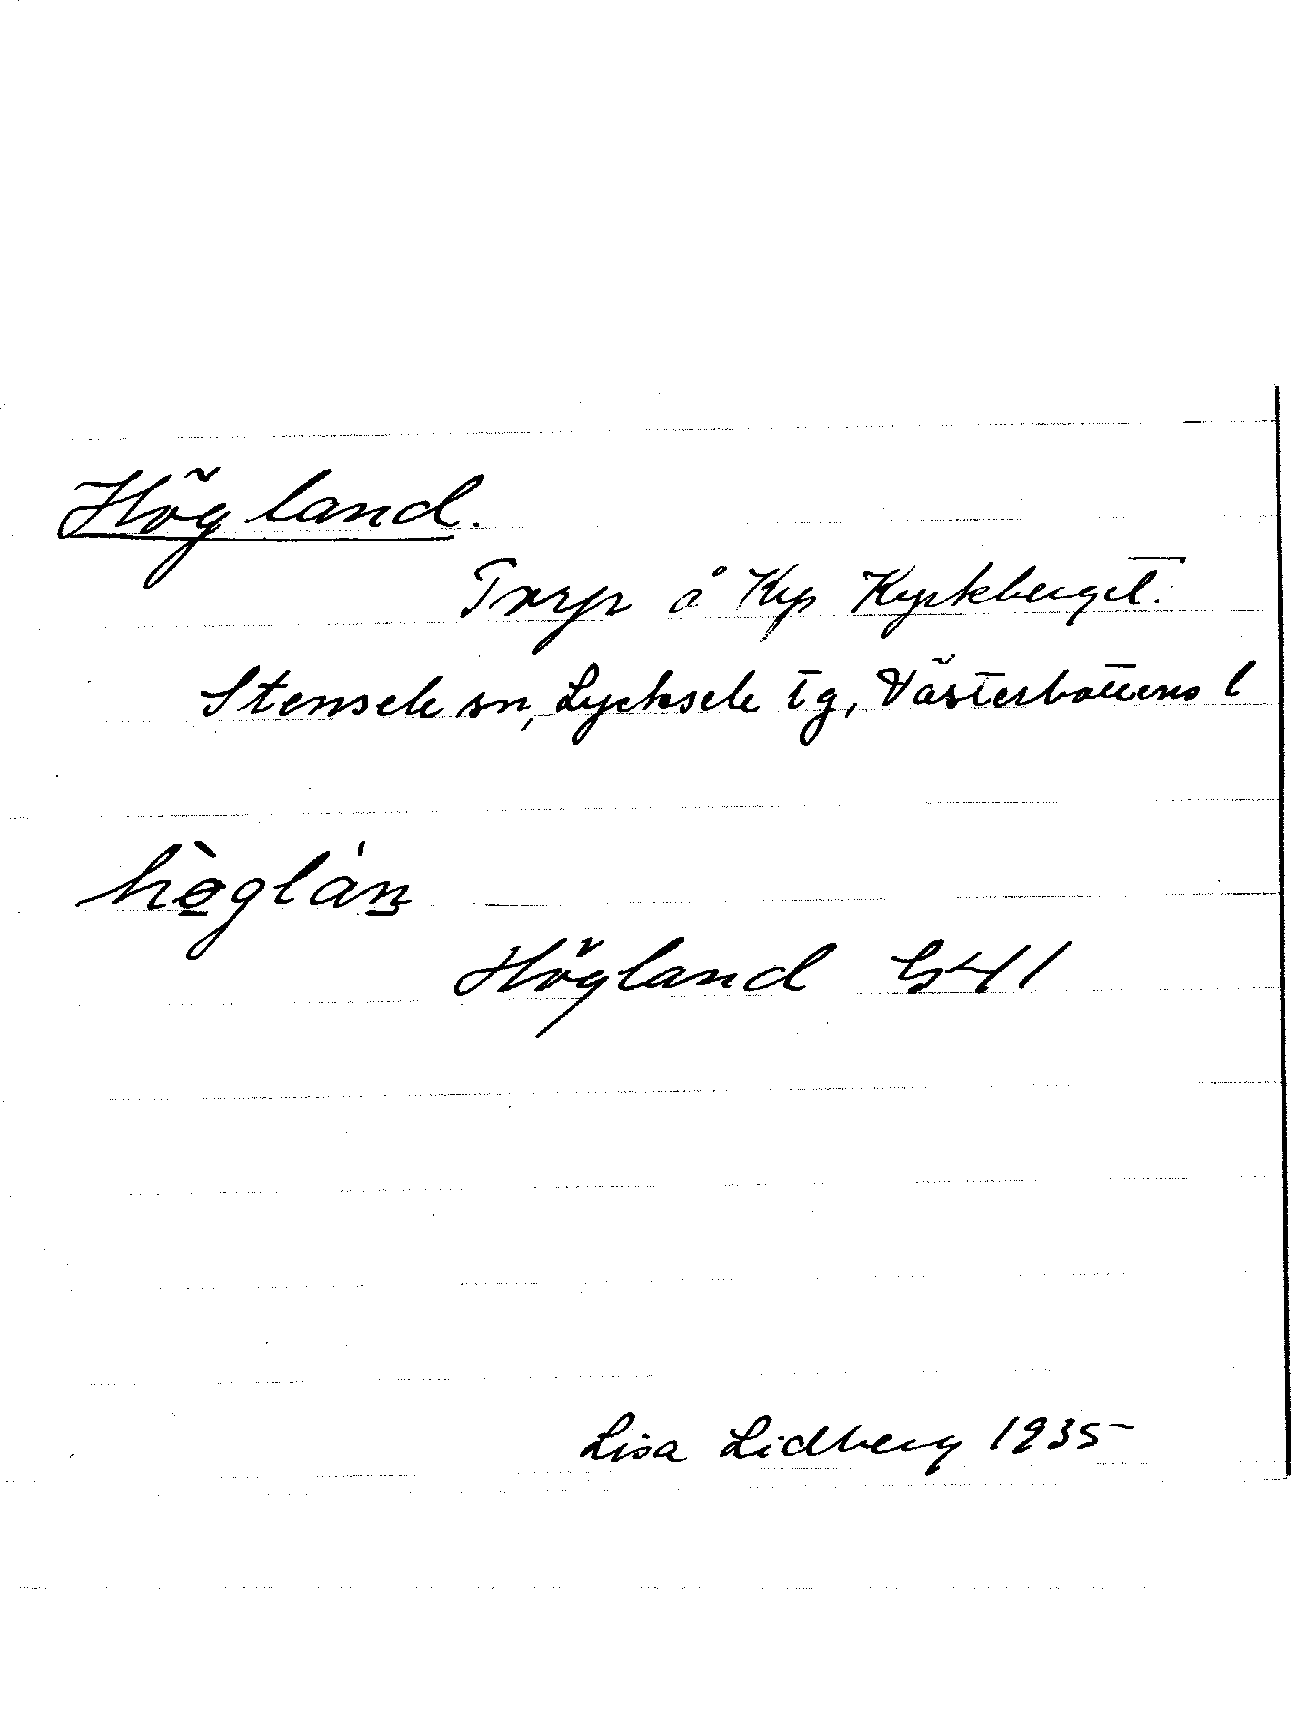 Högland.
Torp å Kp Kyrkberget.
Stensele sn, Lycksele tg, Västerbottens l
hògláṉ
Högland G41
Lisa Lidberg 1935